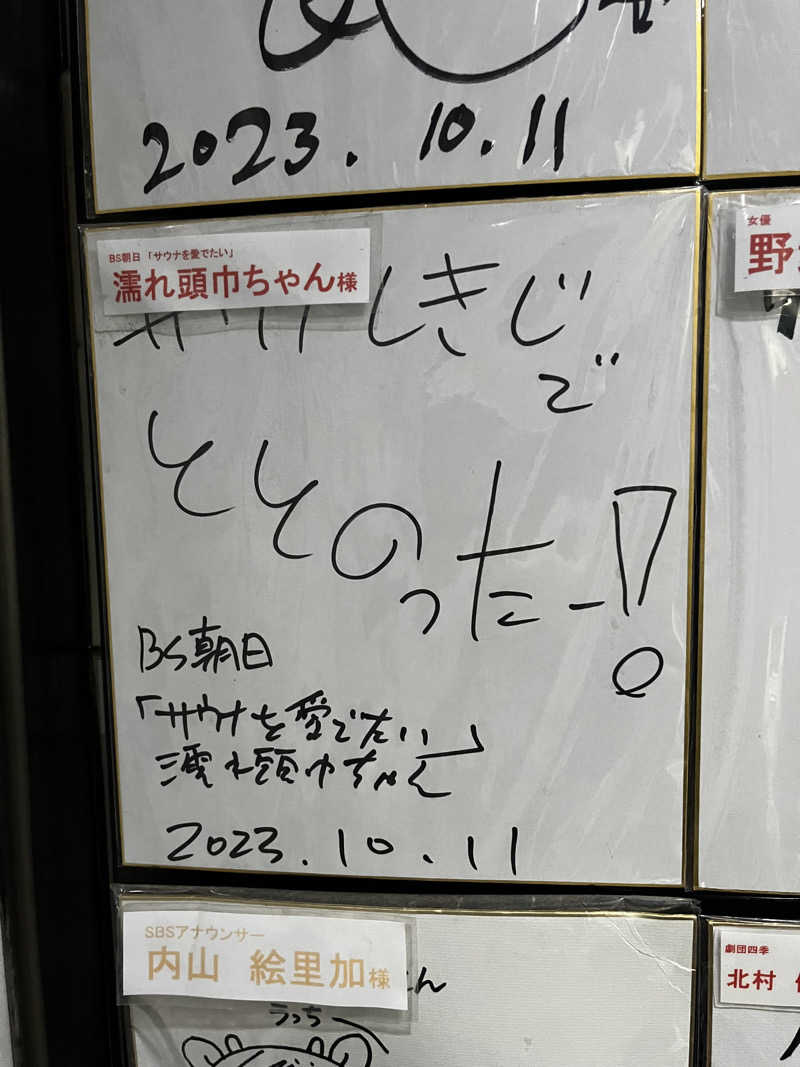 2023.10.11
BS朝日「サウナを愛でたい」
濡れ頭巾ちゃん様
サウナしきじ
で
ととのったー!
BS朝日
「サウナを愛でたい」
濡れ頭巾ちゃん
2023.10.11
女優
野
SBSアナウンサー
内山 絵里加様
うっち
劇団四季
北村